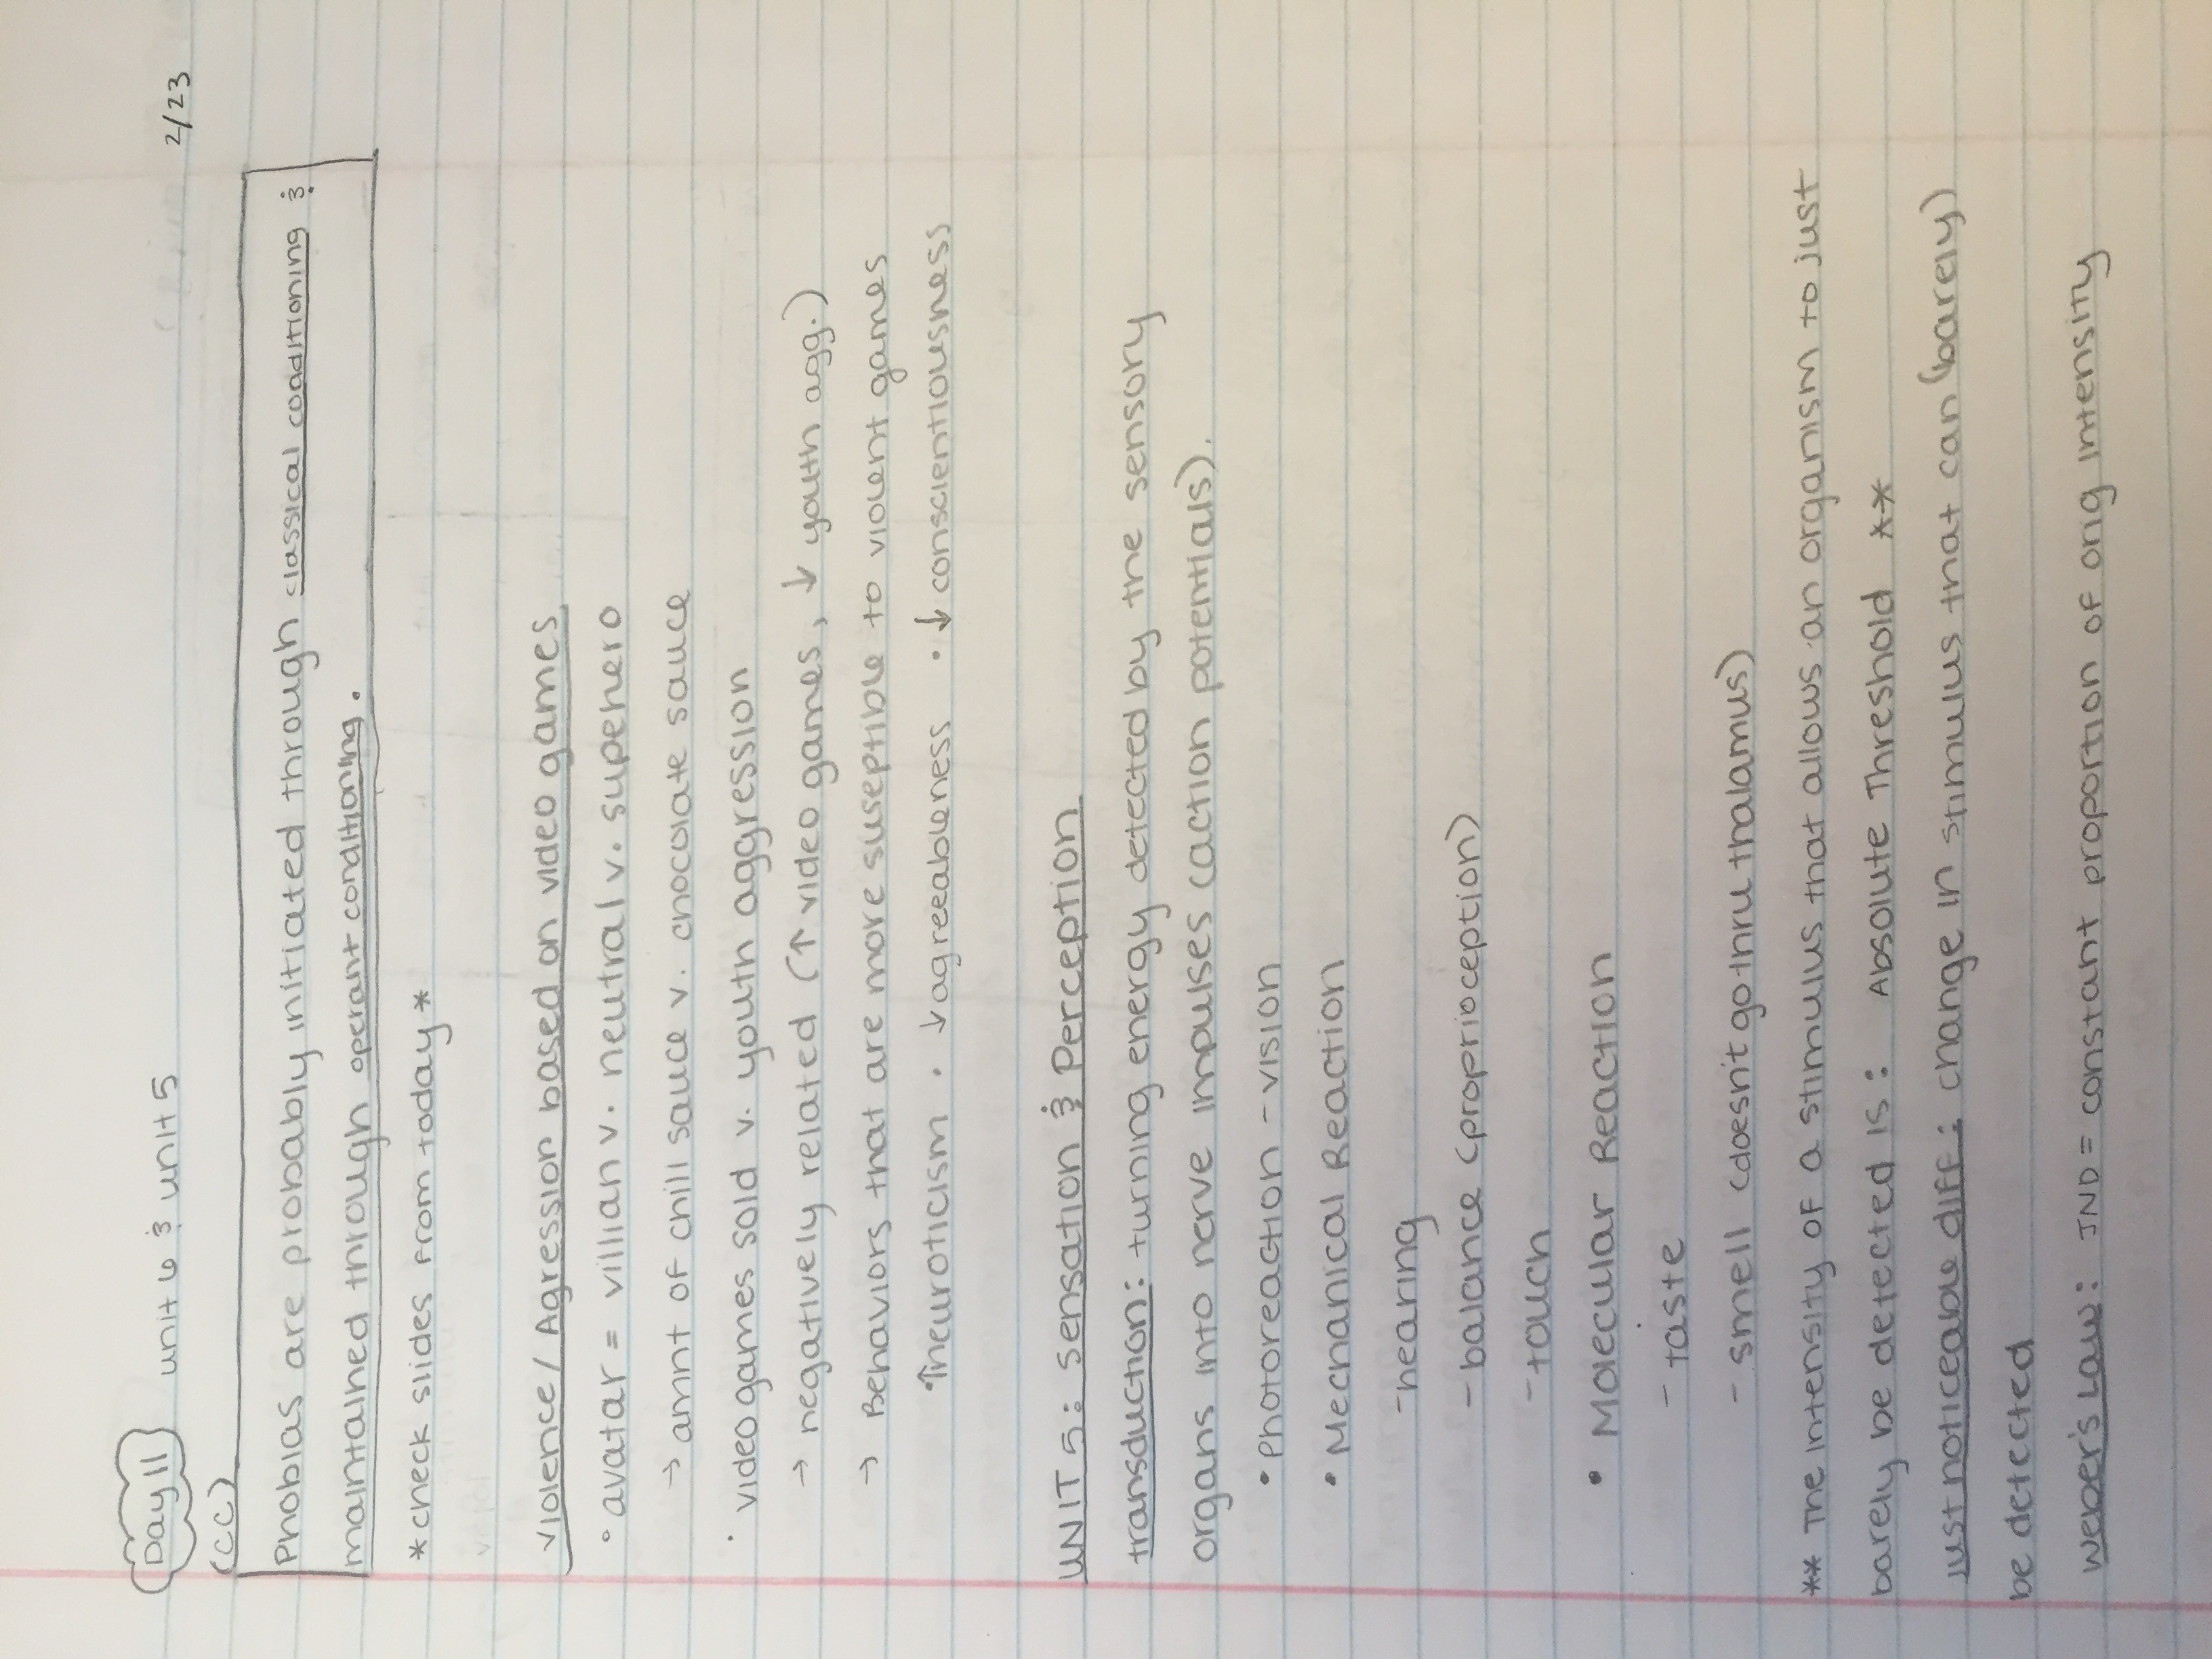 Day 11 unit 6 & unit 5 2/23
(CC)
Phobias are probably initiated through classical conditioning &
maintained through operant conditioning.
*check slides from today*
Violence/Agression based on video games
• avatar = villian v. neutral v. superhero
→ amnt of chili sauce v. chocolate sauce
• video games sold v. youth aggression
→ negatively related (↑ video games, ↓ youth agg.)
→ Behaviors that are more suseptible to violent games
•↑neuroticism • ↓agreeableness • ↓conscientiousness
UNIT 5: Sensation & Perception
transduction: turning energy detected by the sensory
organs into nerve impulses (action potentials).
• Photoreaction - vision
• Mechanical Reaction
- hearing
- balance (proprioception)
- touch
• Molecular Reaction
- taste
- smell (doesn't go thru thalamus)
** The intensity of a stimulus that allows an organism to just
barely be detected is: Absolute Threshold **
just noticeable diff: change in stimulus that can (barely)
be detected
Weber's Law: JND = constant proportion of orig intensity